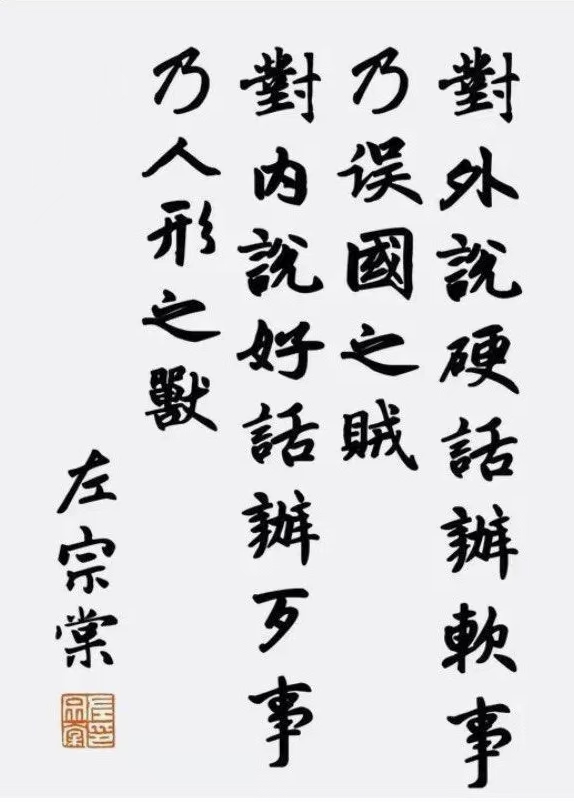 對外說硬話辦軟事
乃误國之賊
對內說好話辦歹事
乃人形之獸
左宗棠